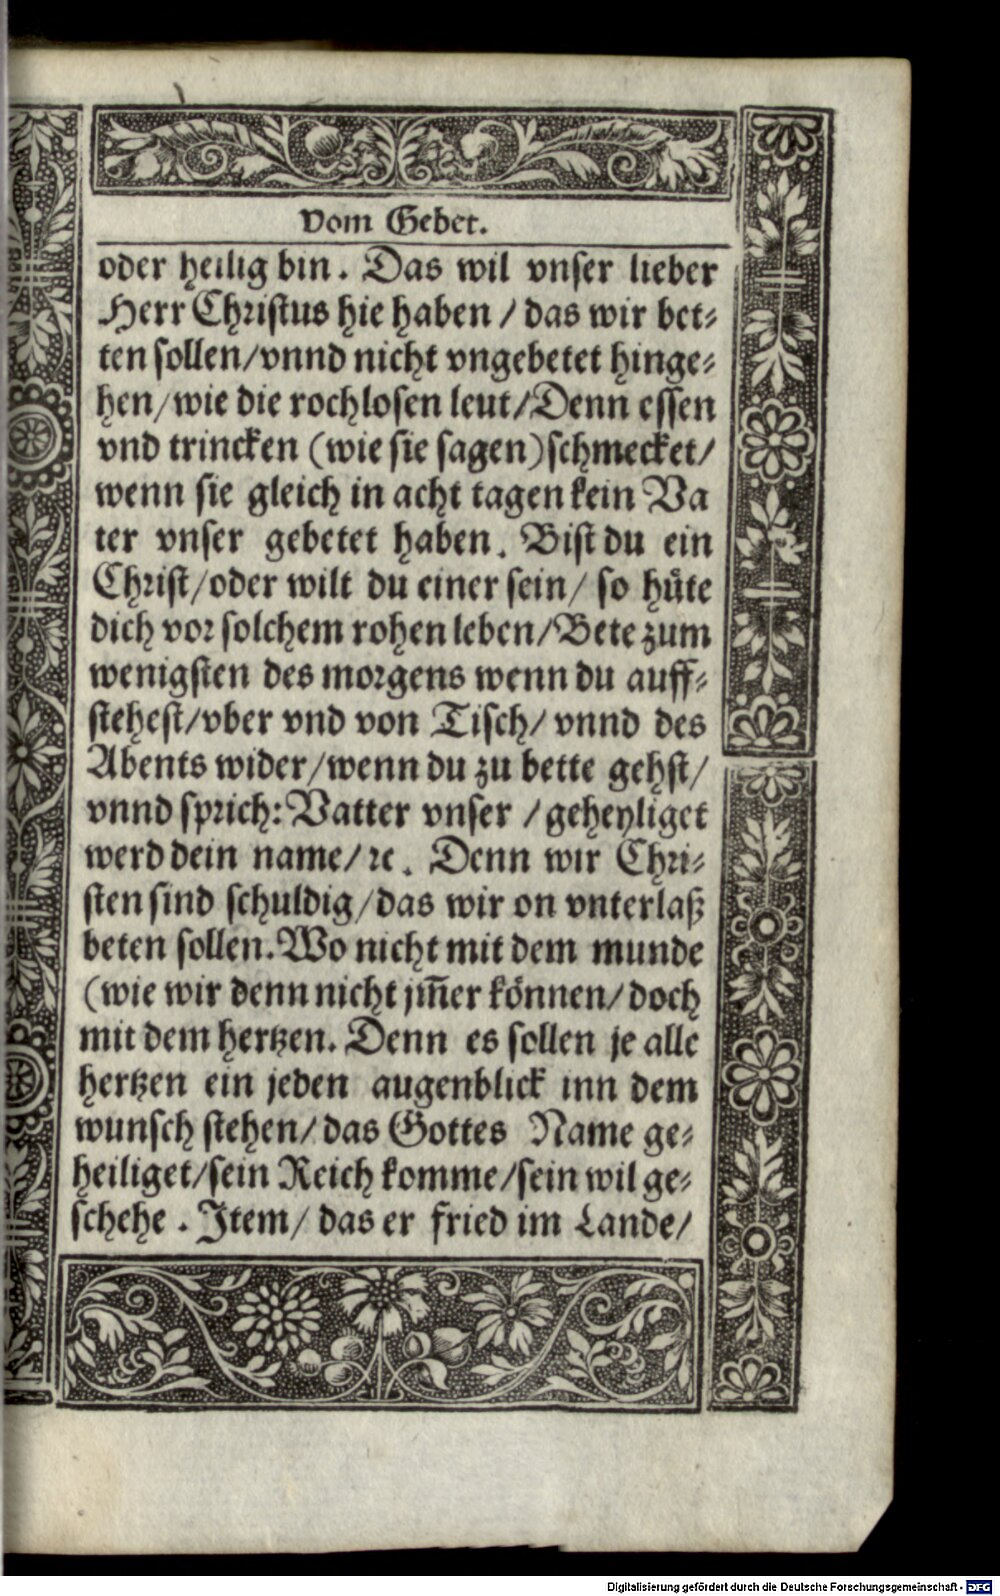 Vom Gebet.
oder heilig bin. Das wil vnser lieber
Herr Christus hie haben / das wir bet-
ten sollen/vnnd nicht vngebetet hinge-
hen/wie die rochlosen leut/Denn essen
vnd trincken (wie sie sagen)schmecket/
wenn sie gleich in acht tagen kein Va
ter vnser gebetet haben. Bist du ein
Christ/oder wilt du einer sein/ so hüte
dich vor solchem rohen leben/Bete zum
wenigsten des morgens wenn du auff-
stehest/vber vnd von Tisch/ vnnd des
Abents wider/wenn du zu bette gehst/
vnnd sprich: Vatter vnser / geheyliget
werd dein name/ꝛc. Denn wir Chri-
sten sind schuldig/das wir on vnterlaß
beten sollen. Wo nicht mit dem munde
(wie wir denn nicht jm̄er können/ doch
mit dem hertzen. Denn es sollen je alle
hertzen ein jeden augenblick inn dem
wunsch stehen/ das Gottes Name ge-
heiliget/sein Reich komme/sein wil ge-
schehe . Item/ das er fried im Lande/
Digitalisierung gefördert durch die Deutsche Forschungsgemeinschaft - DFG